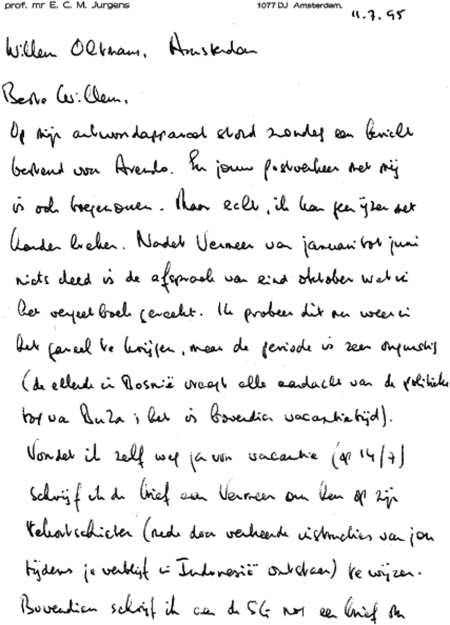 prof. mr E. C. M. Jurgens 1077 DJ Amsterdam. 11.7.95
Willem Oltmans, Amsterdam
Beste Willem,
Op mijn antwoordapparaat stond zondag een bericht
bestemd voor Arendo. En jouw postverkeer met mij
is ook toegenomen. Maar echt, ik kan geen ijzer met
handen breken. Nadat Vermeer van januari tot juni
niets deed is de afspraak van eind oktober wat in
het vergeetboek geraakt. Ik probeer dit nu weer in
het gareel te krijgen, maar de periode is zeer ongunstig
(de ellende in Bosnië vraagt alle aandacht van de politieke
top van BuZa; het is bovendien vacantietijd).
Voordat ik zelf weg ga van vacantie (op 14/7)
schrijf ik de brief aan Vermeer om hen op zijn
tekortschieten (mede door verkeerde instructies van jou
tijdens je verblijf in Indonesië ontstaan) te wijzen.
Bovendien schrijf ik aan de SG nog een brief om